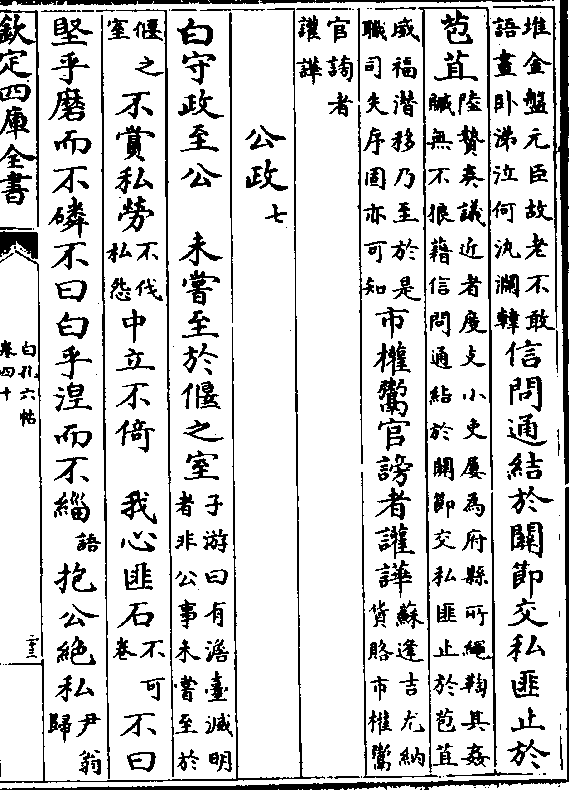 堆金盤元臣故老不敢語晝卧涕泣何汍瀾韓信問通結於關節交私匪止於
苞苴陸贄奏議近者度支小吏屢為府縣所繩鞫其姦贓無不狼藉信問通結於關節交私匪止於苞苴
威福潛移乃至於是職司失序固亦可知市權鬻官謗者讙譁蘇逢吉尤納貨賂市權鬻
官謗者讙譁
公政七
白守政至公 未嘗至於偃之室子游曰有澹臺滅明者非公事未嘗至於
偃之室不賞私勞不伐私怨中立不倚 我心匪石不可卷不曰
堅乎磨而不磷不曰白乎涅而不緇語抱公絶私尹翁歸
欽定四庫全書
白孔六帖
卷四十